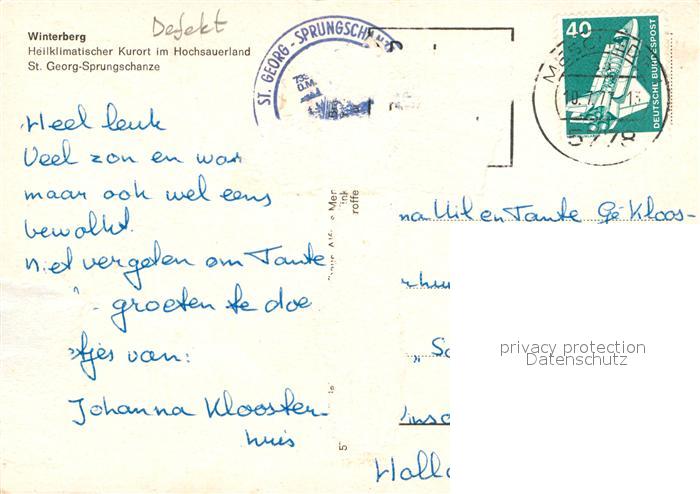 Defekt
Winterberg
Heilklimatischer Kurort im Hochsauerland
St. Georg-Sprungschanze
ST. GEORG - SPRUNGSCHANZ
40
DEUTSCHE BUNDESPOST
5778
Heel leuk
Veel zon en
maar ook wel eens
bewolkt.
niet vergeten om Tante
groeten te doe
tjes van:
Johanna Klooster-
huis
na Uil en Tante Gé Kloos-
rhui
"Sc
Holl
privacy protection
Datenschutz